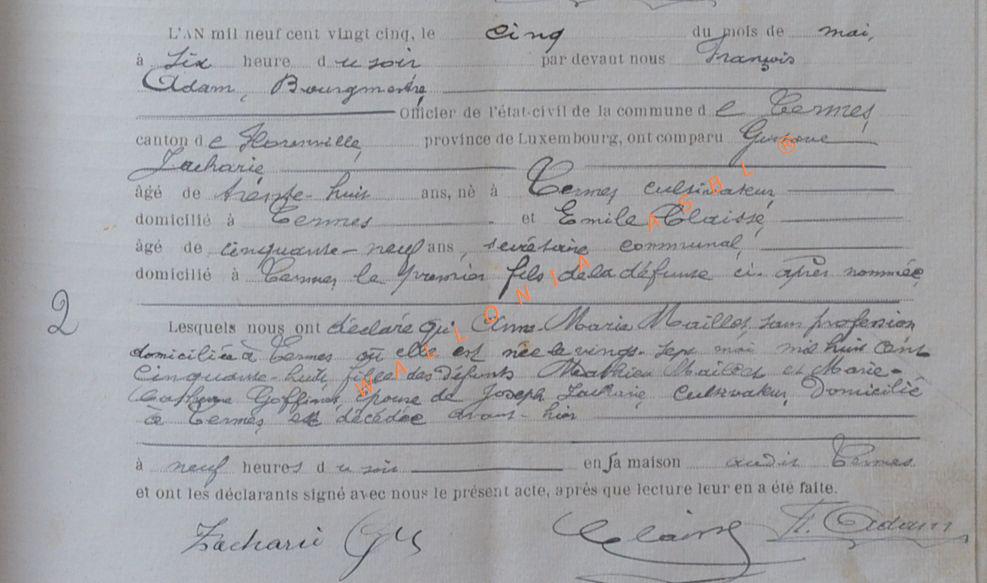 L'AN mil neuf cent vingt cinq, le cinq du mois de mai,
à six heure du soir par devant nous François
Adam, Bourgmestre,
Officier de l'état-civil de la commune de Termes,
canton de Florenville, province de Luxembourg, ont comparu
Zacharie
âgé de trente-huit ans, né à Termes cultivateur,
domicilié à Termes et Emile Claisse,
âgé de cinquante-neuf ans, secrétaire communal,
domicilié à Termes, le premier fils de la défunte ci-après nommée,
2
Lesquels nous ont déclaré qu' Anne-Marie Maillet, sans profession
domiciliée à Termes où elle est née le vingt-sept mai mil huit cent
cinquante-huit, fille des défunts Mathieu Maillet et Marie-
Goffinet, épouse de Joseph Zacharie, cultivateur, Domicilié
à Termes, est décédée avant-hier
à neuf heures du soir en sa maison audit Termes
et ont les déclarants signé avec nous le présent acte, après que lecture leur en a été faite.
Zacharie Claisse F. Adam
WALLONIA ASBL ®